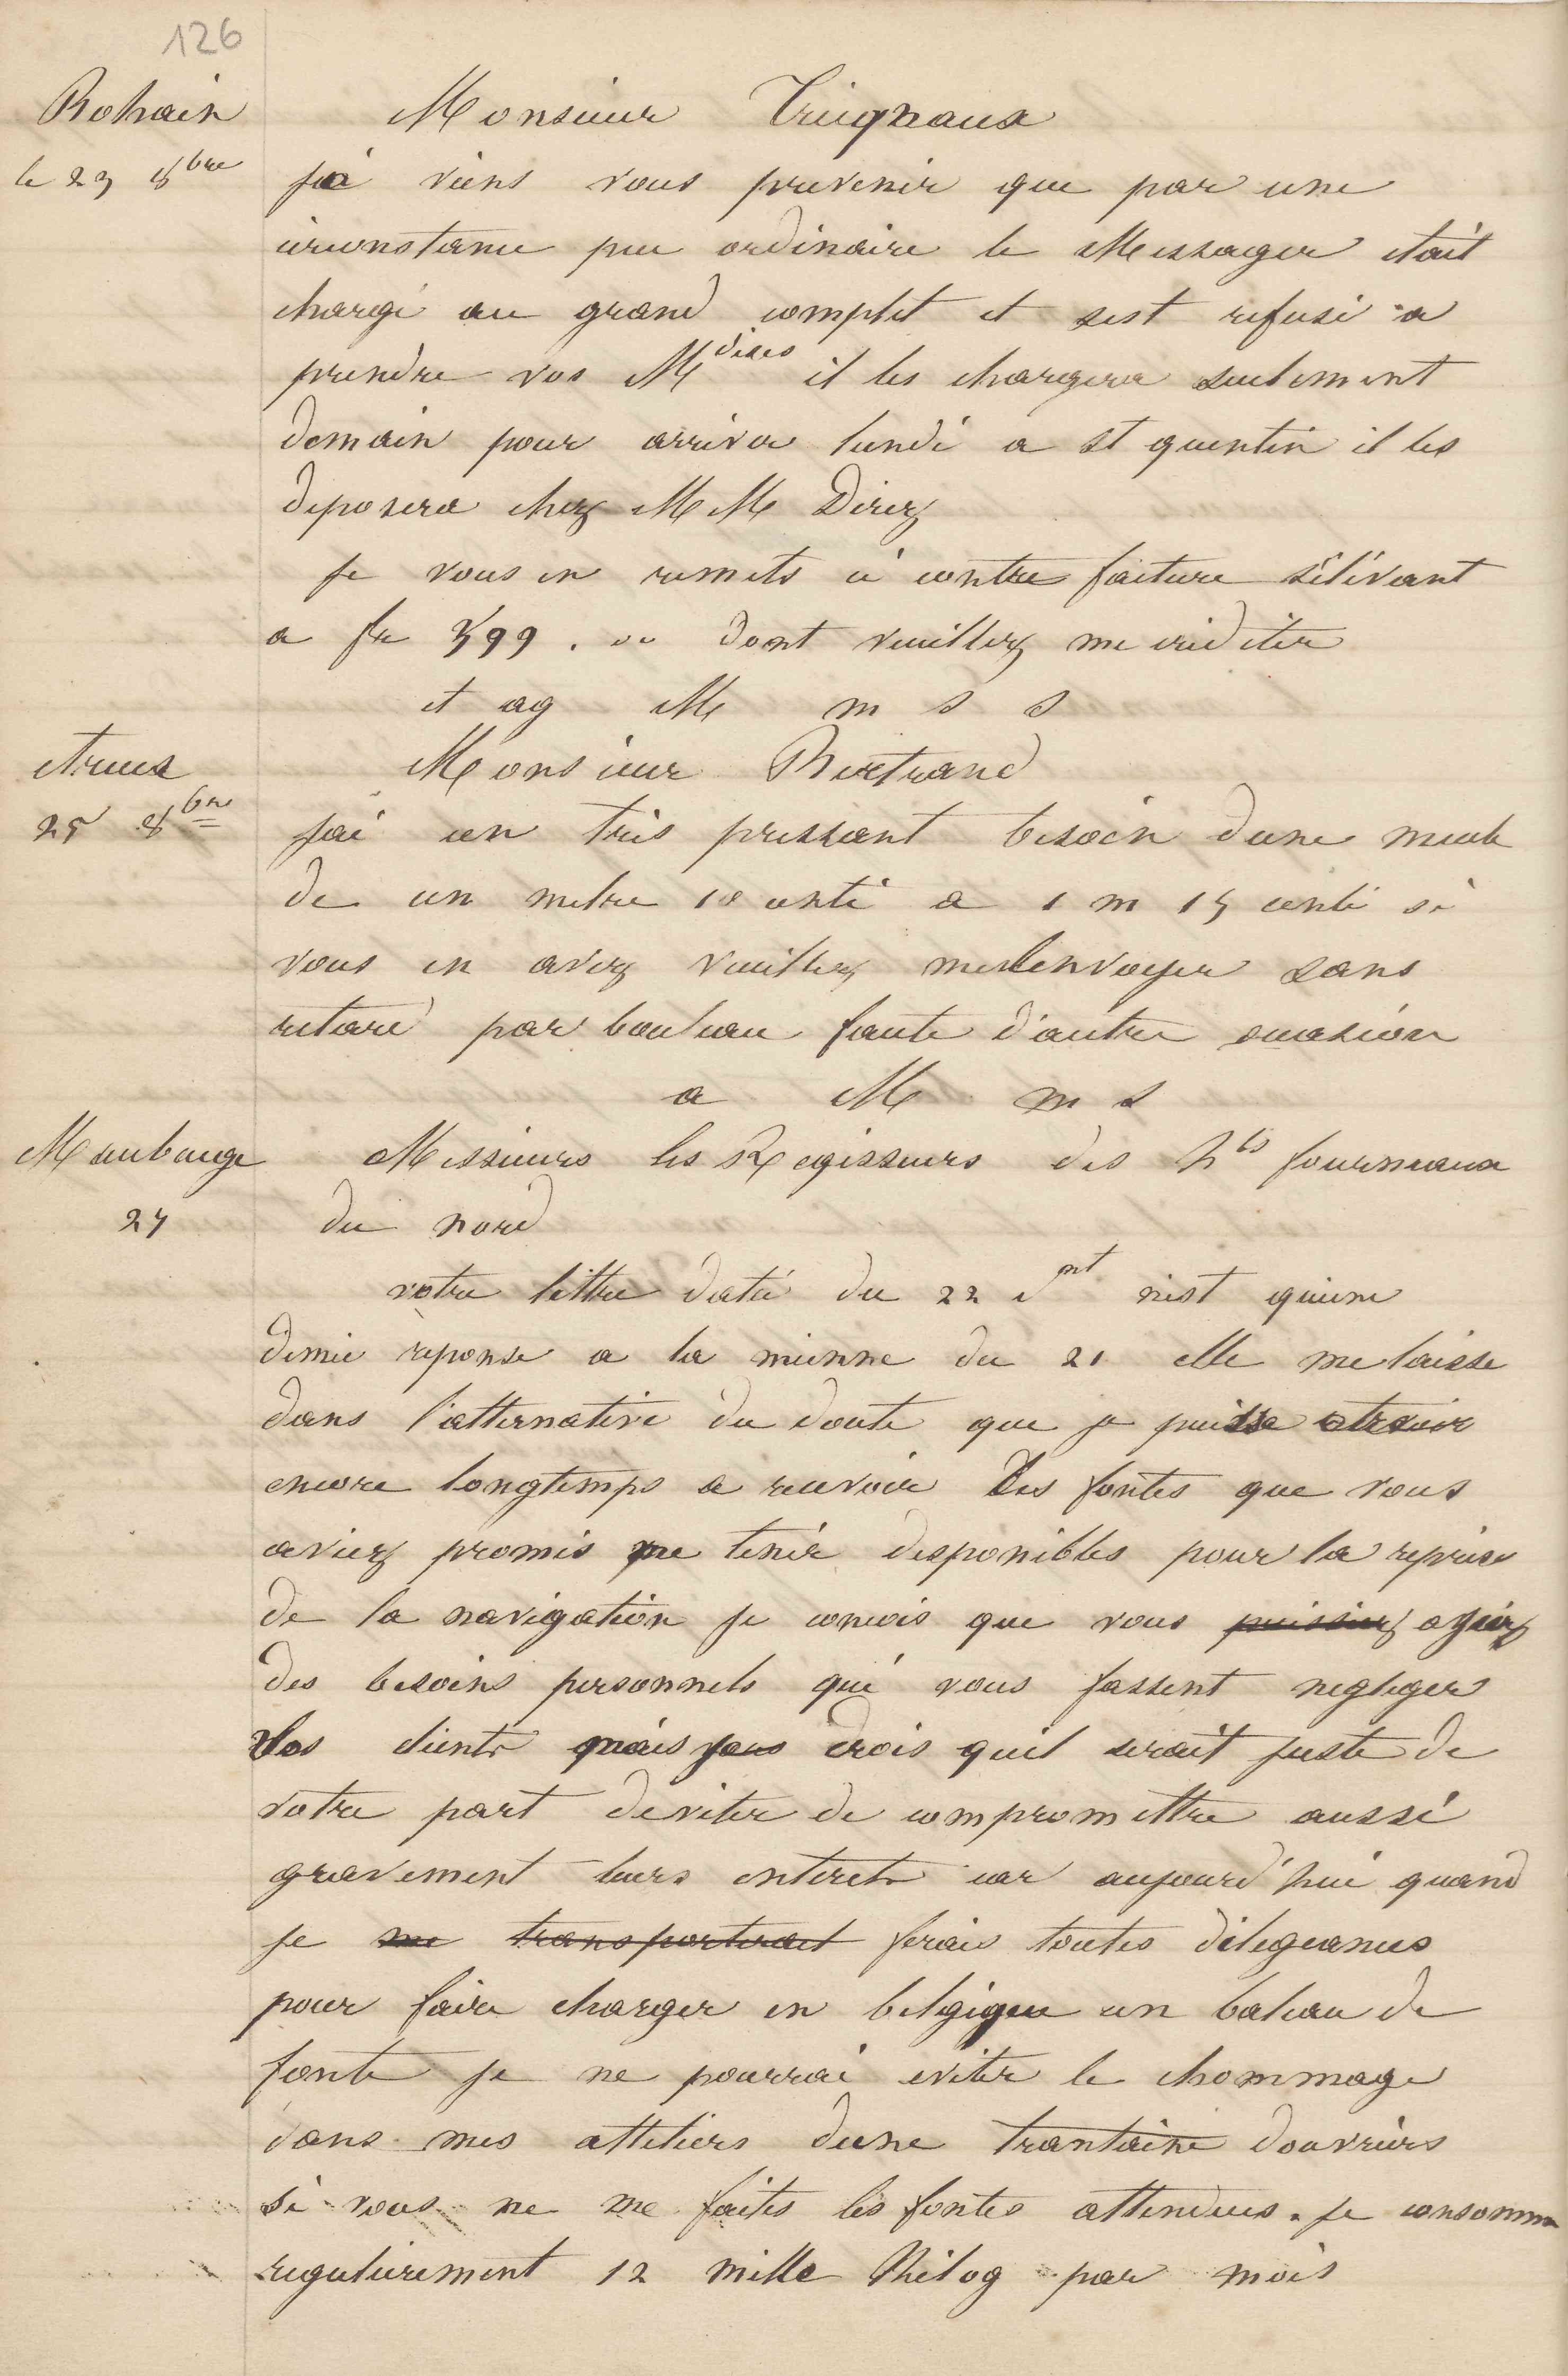 126
Bohain
le 23 8bre
Monsieur Truignaux
je viens vous prevenir que par une
circonstance peu ordinaire le Messager etait
chargé au grand complet et sest refusé a
prendre vos Mdises il les chargera seulement
demain pour arriver lundi a st quentin il les
deposera chez MM Direz
je vous en remets ci contre facture s'élévant
a fr 399 . oo dont veuillez me créditer
et ag M m s s
Monsieur Bertrand
25 8bre
jai un très pressant besoin dune meule
de un metre 10 centi a 1 m 15 centi si
vous en avez veuillez me lenvoyer sans
retard par bouleau faute d'autre occasion
a M m s
Maubeuge
27
Messieurs les Regisseurs des hts fourneaux
du nord
votre lettre daté du 22 ct n'est qu'une
demie reponse a la mienne du 21 elle me laisse
dans l'atternative du doute que je puisse
encore longtemps a recevoir les fontes que vous
aviez promis me tenir desponibles pour la reprise
de la navigation je concois que vous puissiez ayiez
des besoins personnels qui vous fassent negliger
Vos clients mais crois quil serait juste de
votre part deviter de compromettre aussi
gravement leurs interets car aujourd'hui quand
je me transporterait ferais toutes dilegeances
pour faire charger en belgique un bateau de
fonte je ne pourrai eviter le chommage
dans mes atteliers dune trantaine douvriers
si vous ne me faites les fontes attendues . je consomme
regulierement 12 mille Kilog par mois